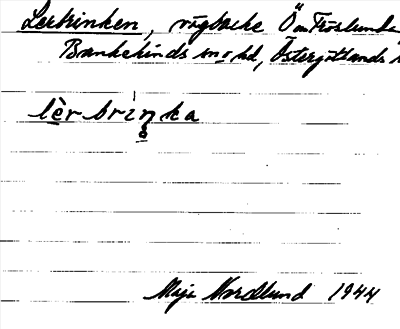 Lerbrinken, vägbacke Ö om Fröslunda
Bankekinds sn o hd, Östergötlands
lèrbriŋka
Maja Nordlund 1944